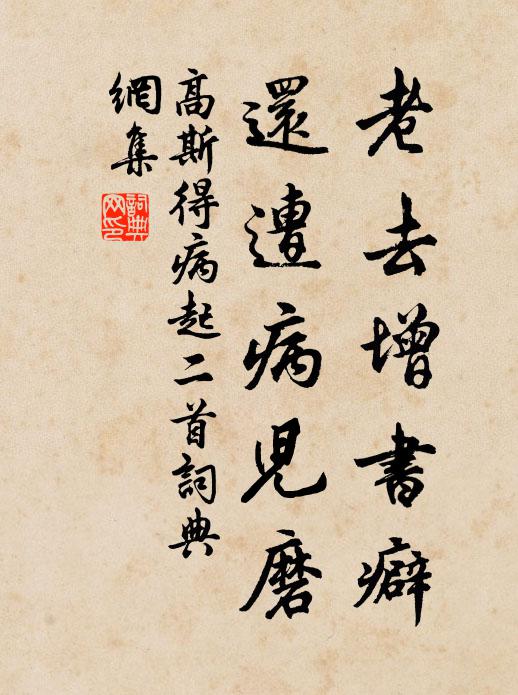 老去增書癖
還遭病兒磨
高斯得病起二首詞典
網集
詞典
网印